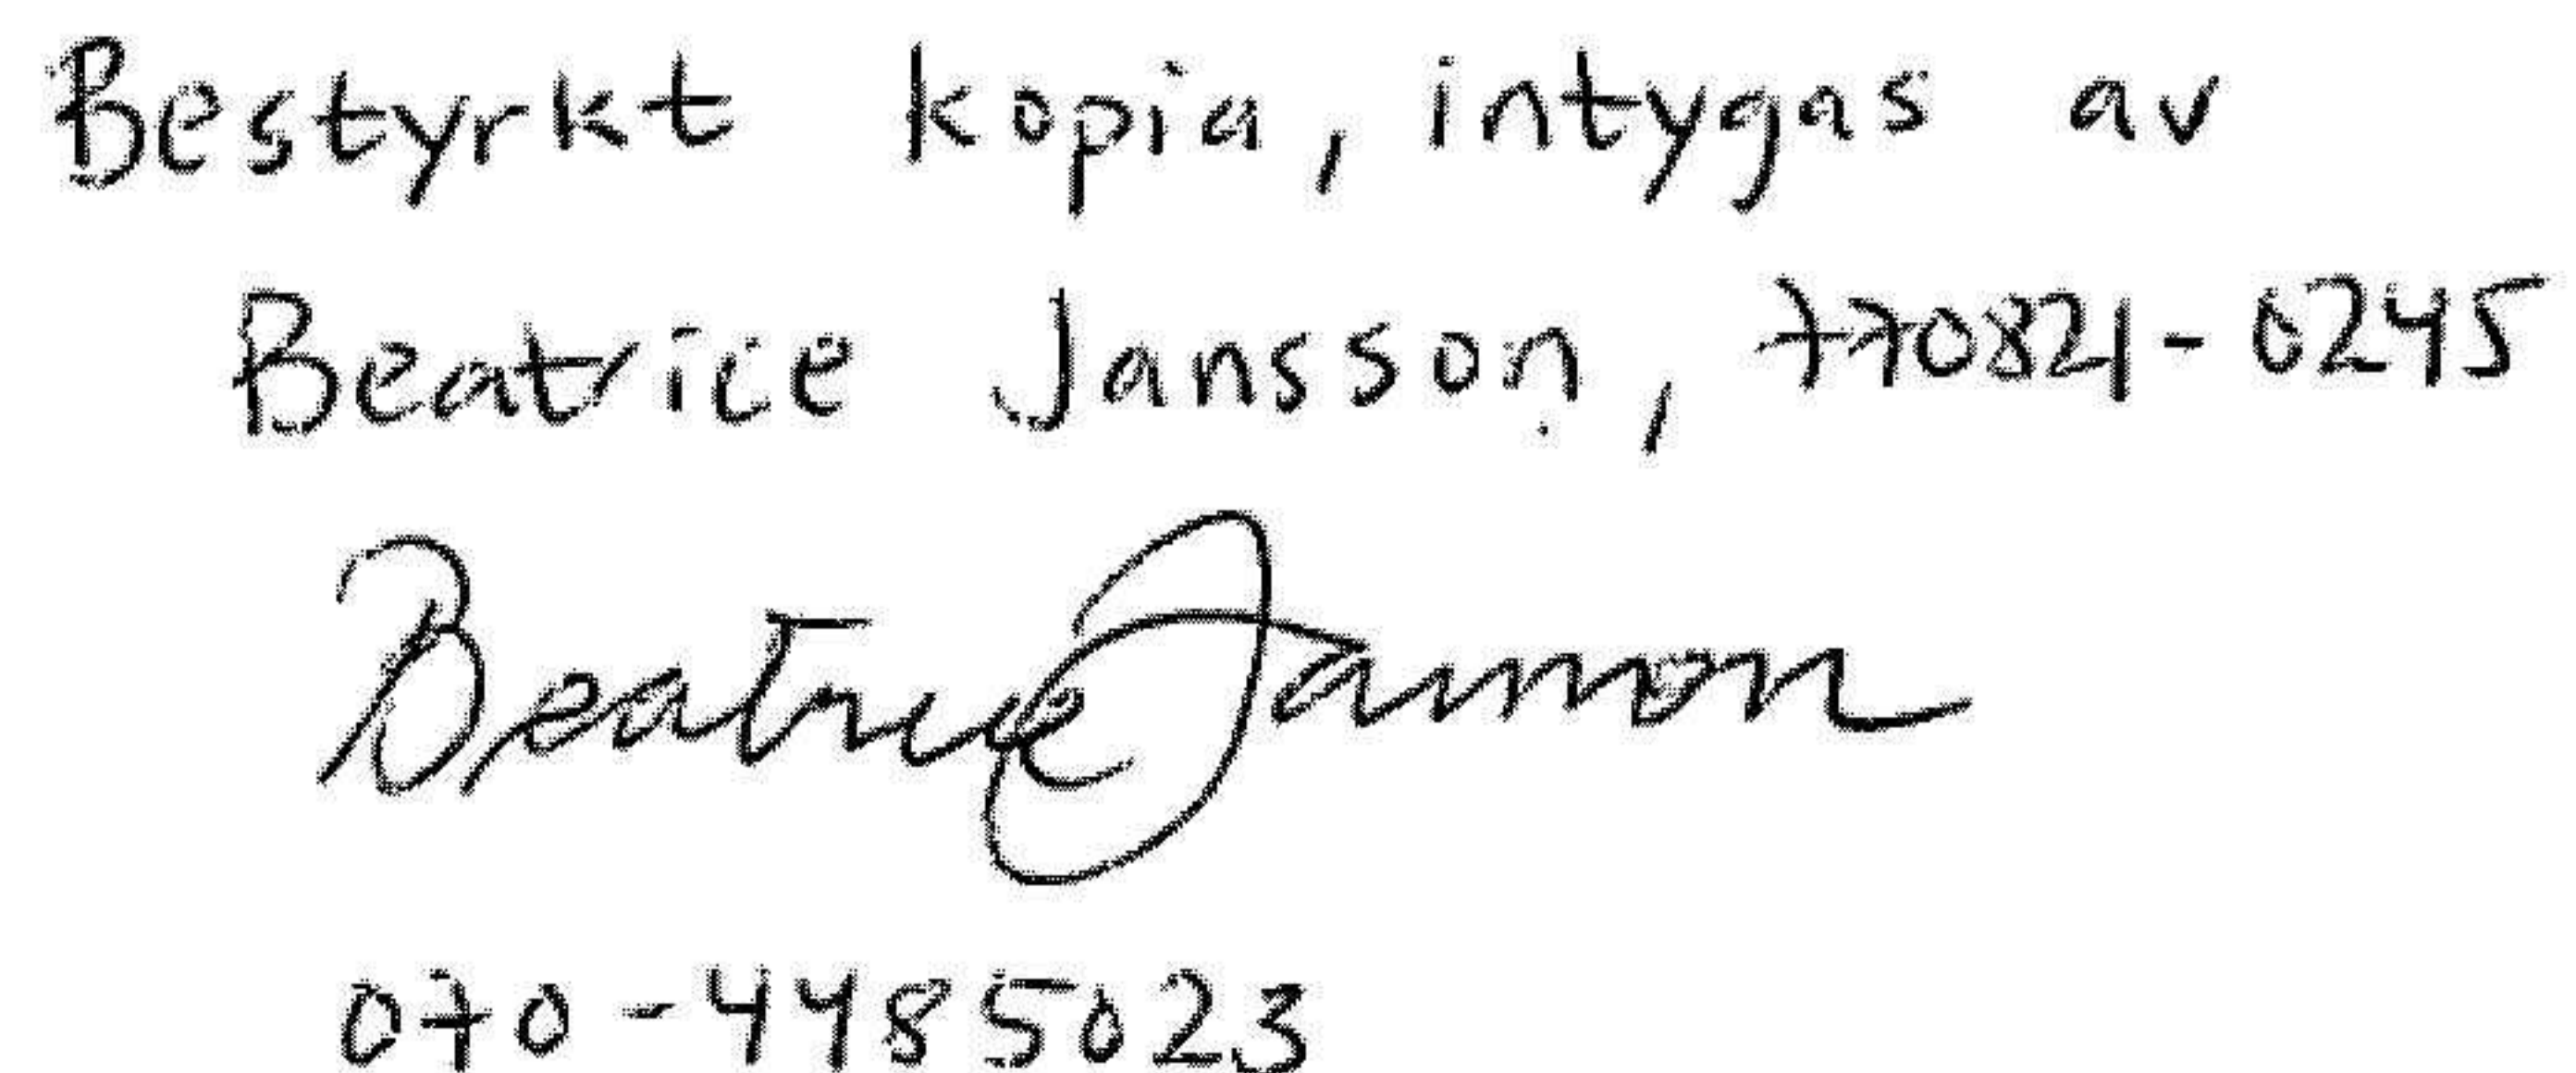 Bestyrkt kopia, intygas av
Beatrice Jansson, 770821-0245
Beatrice Jansson
070-4485023